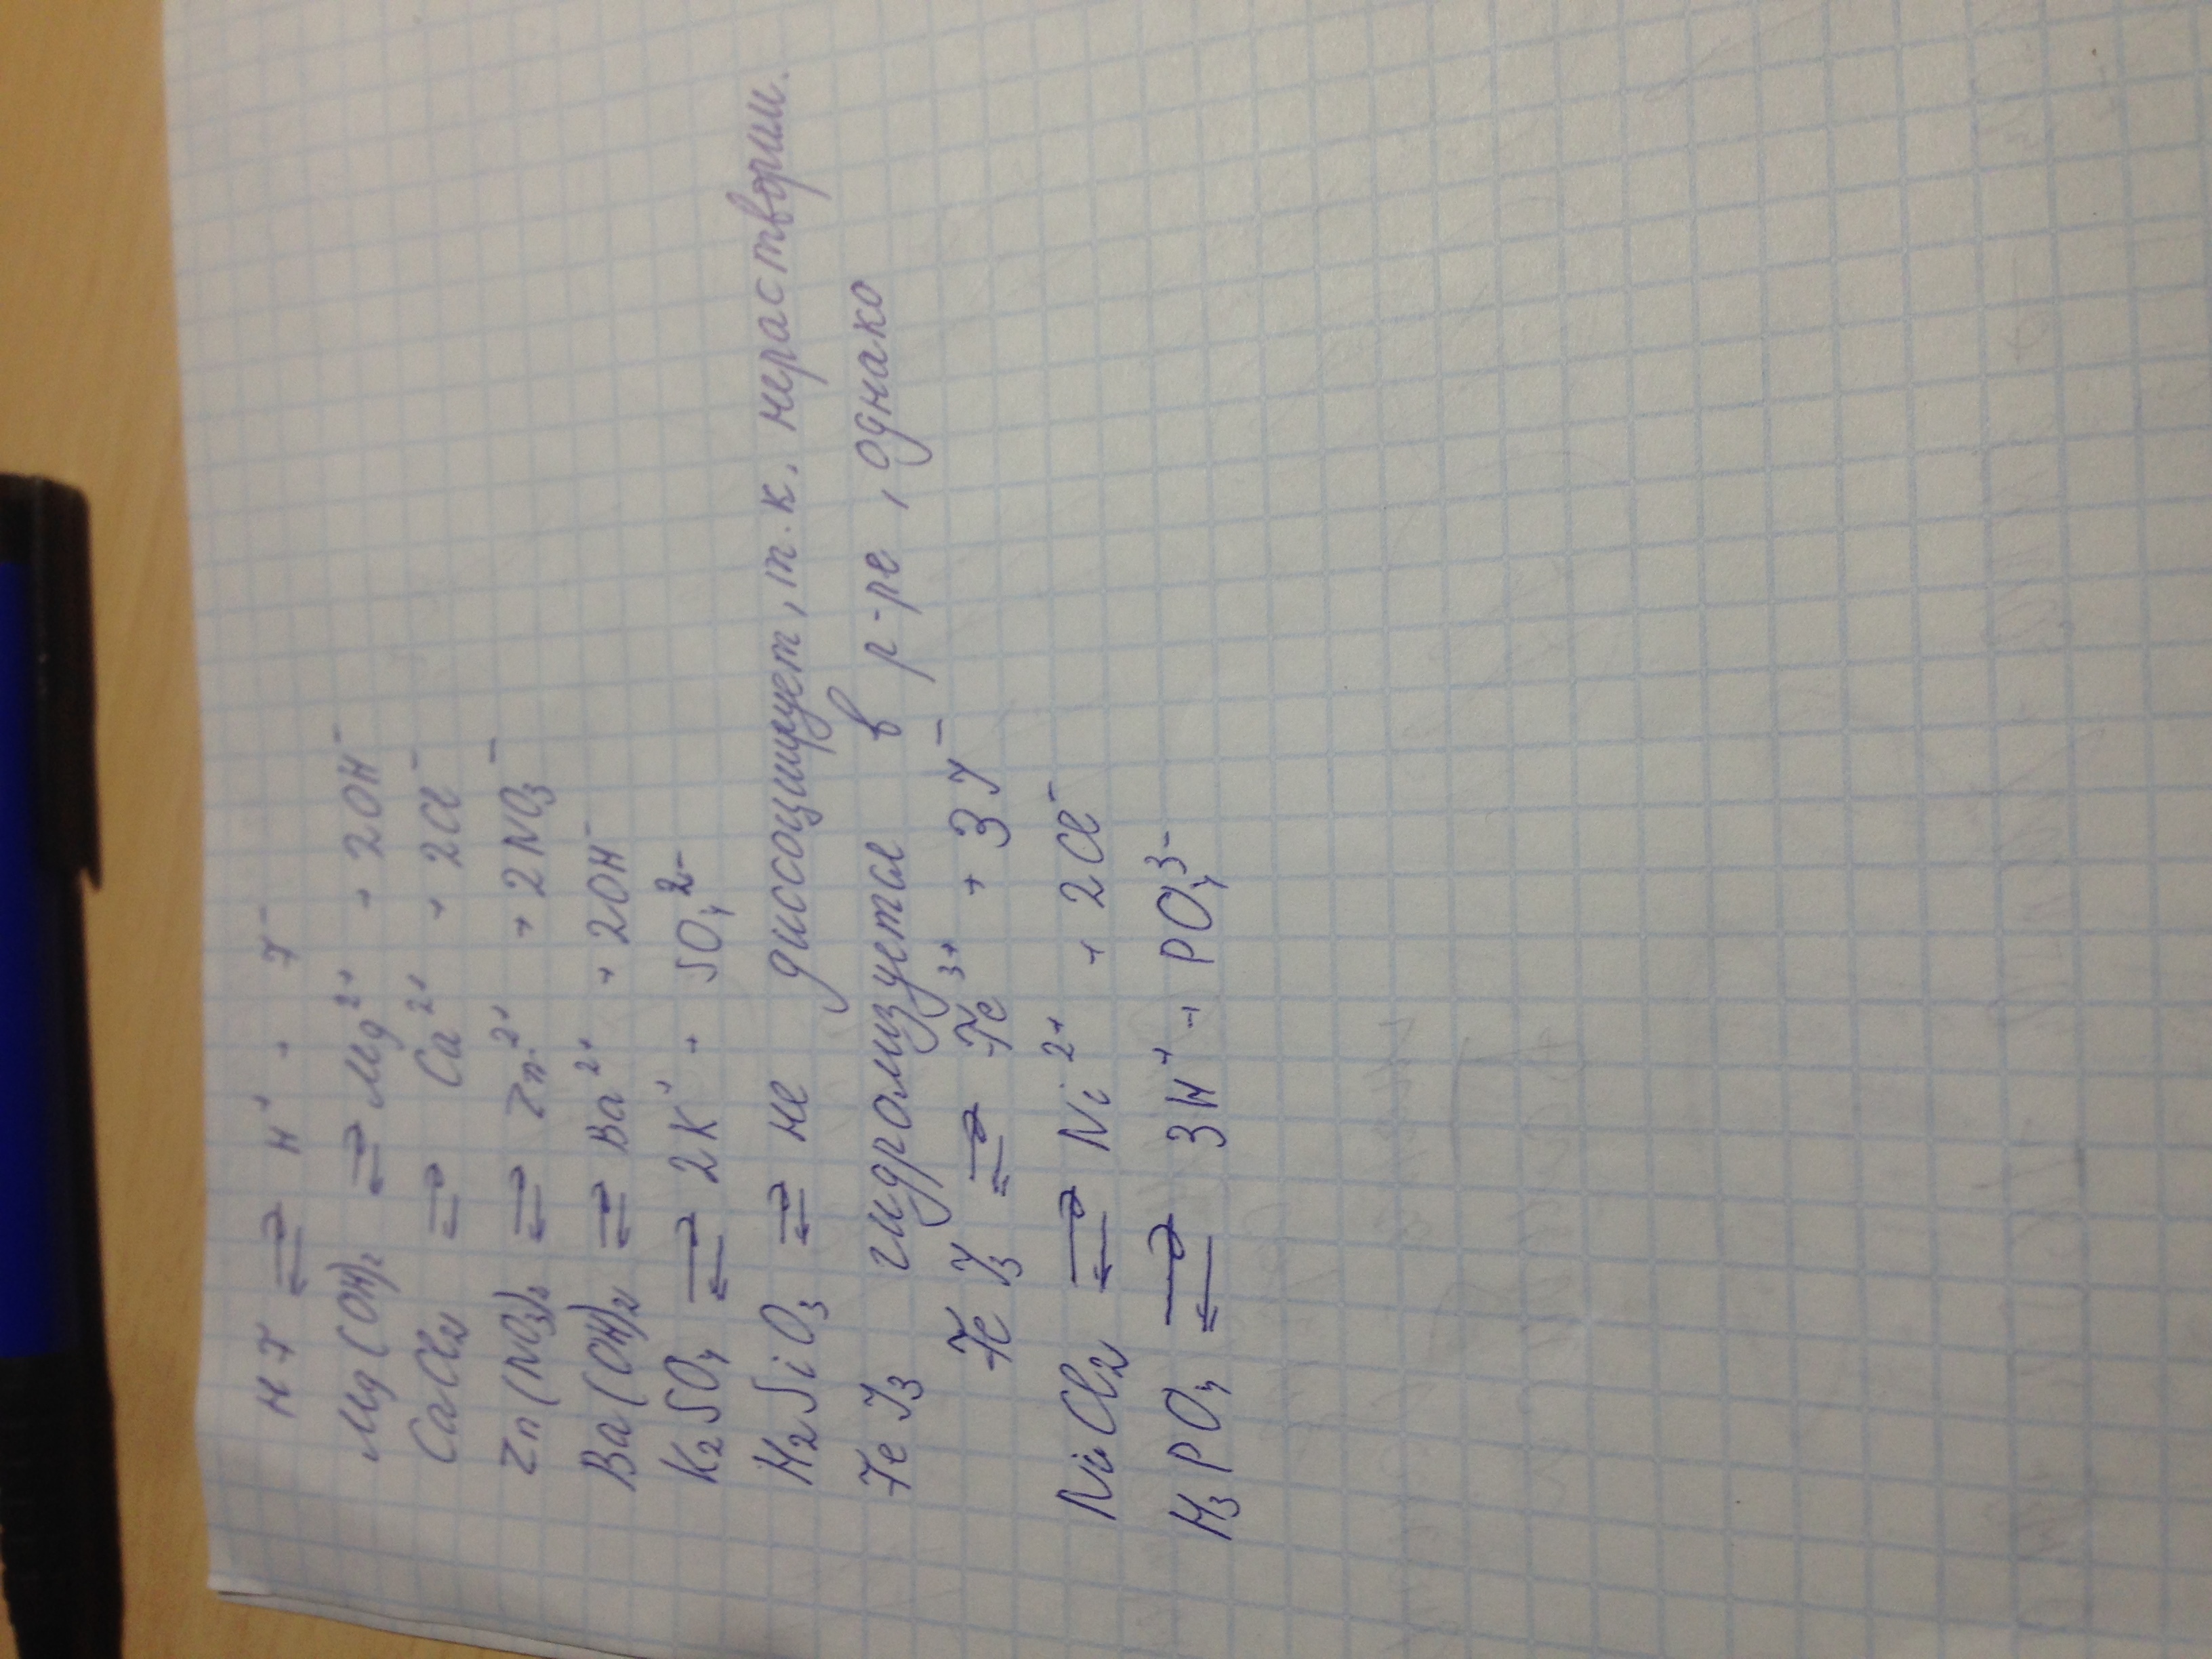 HF ⇄ H⁺ + F⁻
Mg(OH)₂ ⇄ Mg²⁺ + 2OH⁻
CaCl₂ ⇄ Ca²⁺ + 2Cl⁻
Zn(NO₃)₂ ⇄ Zn²⁺ + 2NO₃⁻
Ba(OH)₂ ⇄ Ba²⁺ + 2OH⁻
K₂SO₄ ⇄ 2K⁺ + SO₄²⁻
H₂SiO₃ ⇄ не диссоциирует, т.к. нерастворим.
FeI₃ гидролизуется в р-ре, однако
FeI₃ ⇄ Fe³⁺ + 3I⁻
NiCl₂ ⇄ Ni²⁺ + 2Cl⁻
H₃PO₄ ⇄ 3H⁺ + PO₄³⁻